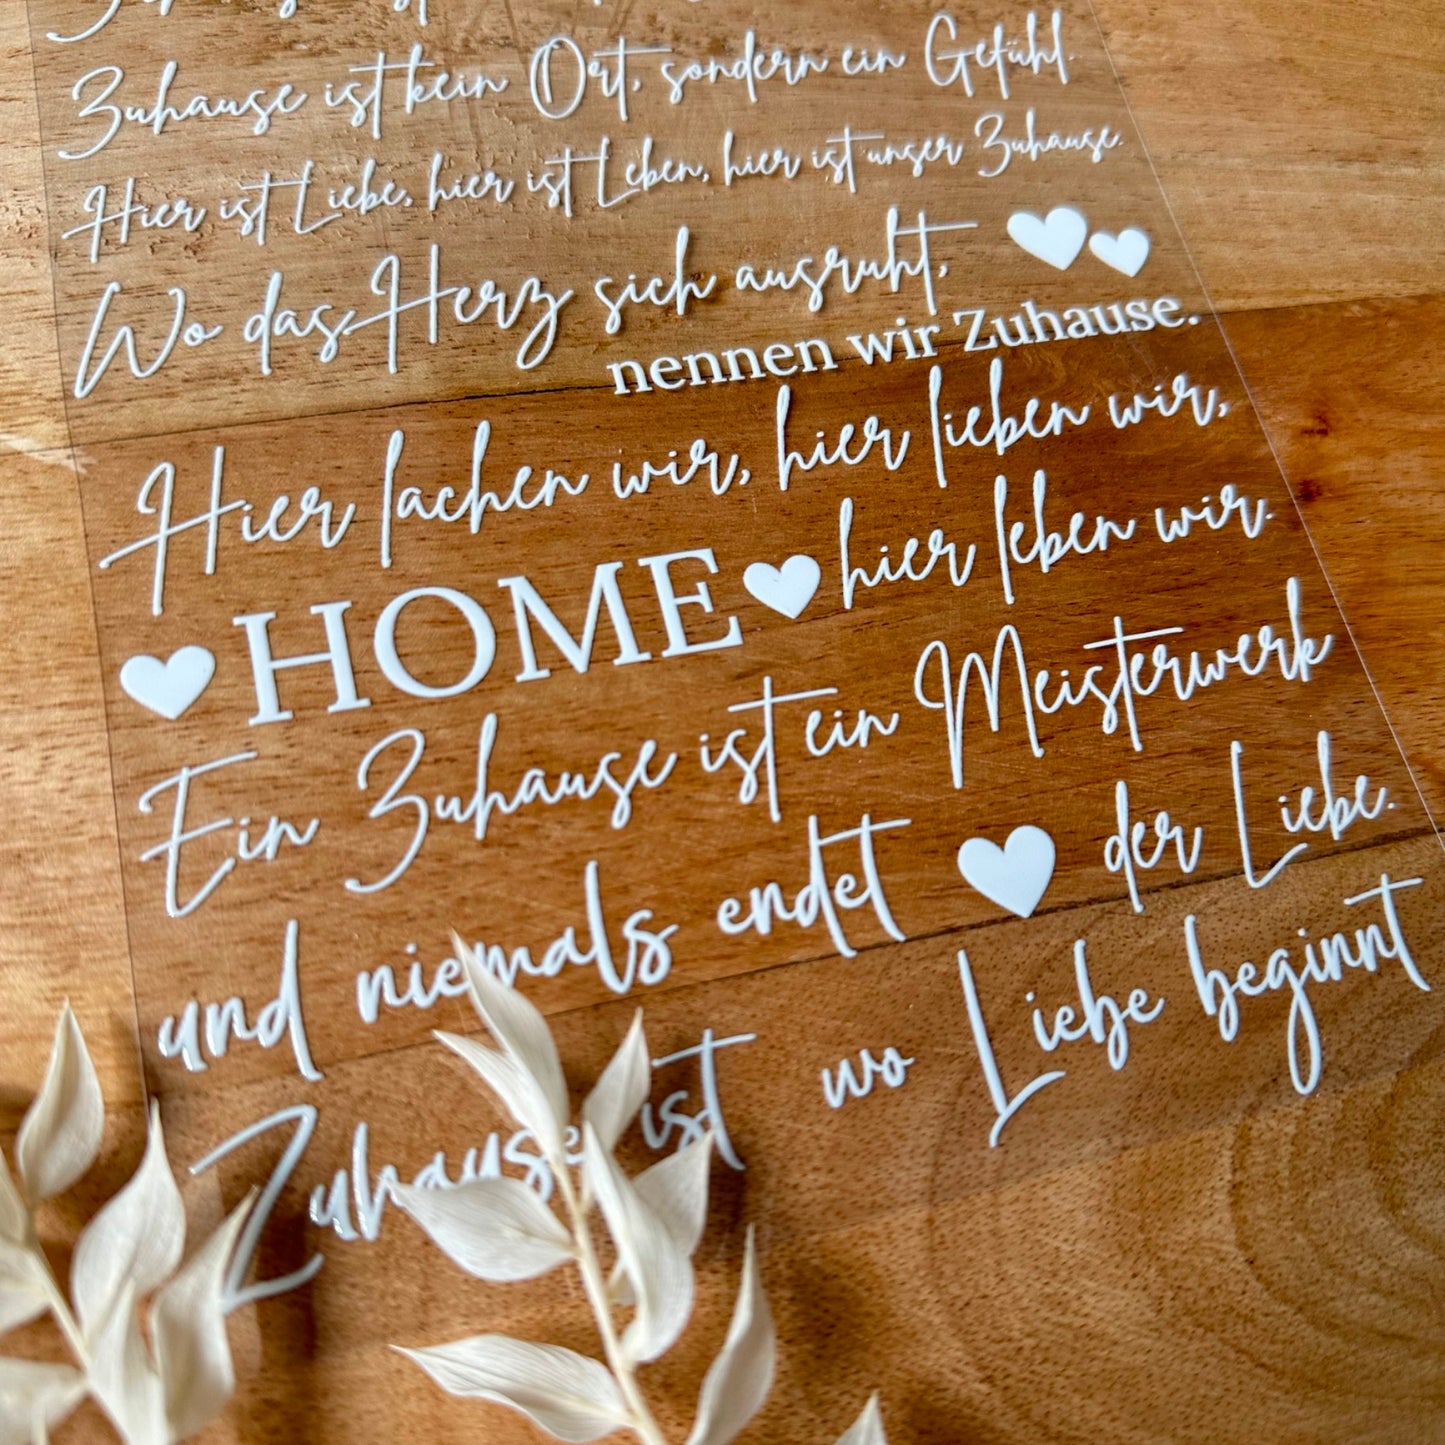 Zuhause ist kein Ort, sondern ein Gefühl.
Hier ist Liebe, hier ist Leben, hier ist unser Zuhause.
Wo das Herz sich ausruht,
nennen wir Zuhause.
Hier lachen wir, hier lieben wir,
hier leben wir.
HOME
Ein Zuhause ist ein Meisterwerk
der Liebe.
und niemals endet
Zuhause ist wo Liebe beginnt